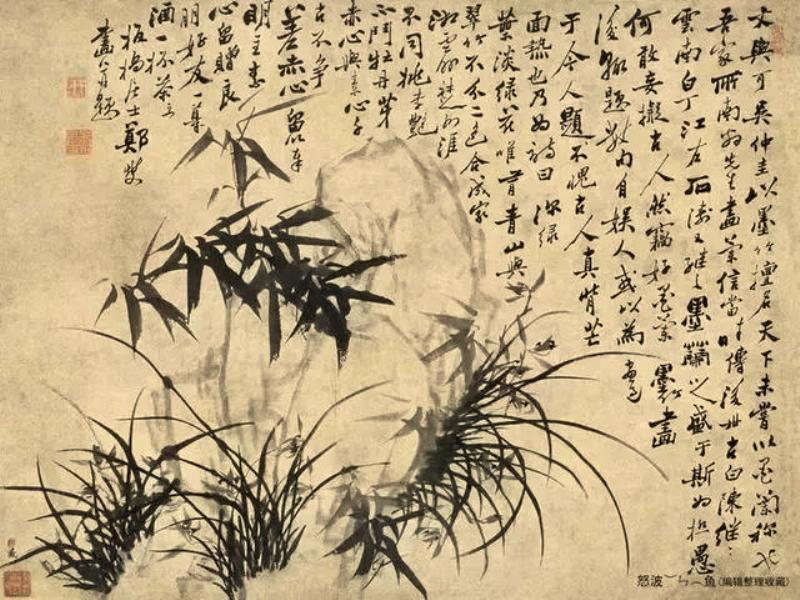 文與可吳仲圭以墨竹擅名天下未嘗以墨蘭称也
吾家所南翁先生畫蘭信當時傳後古白陳继
雲南白丁江左石濤又继之墨蘭之盛于斯为极愚
何敢妄擬古人然竊好墨蘭墨竹畫
後輒題數句自娱人或以為
于今人題不愧古人真背芒
面熱也乃为詩曰 深绿
葉淡绿花唯有青山與
翠竹不分二色合成家
湘雲楚涯
不同桃李艷
不鬥牡丹芽
赤心與素心
古不争
差赤心留以奉
明主素
心留贈良
朋好友一
酒一杯茶
板橋居士鄭燮
畫并題
怒波 鱼(编辑整理收藏)